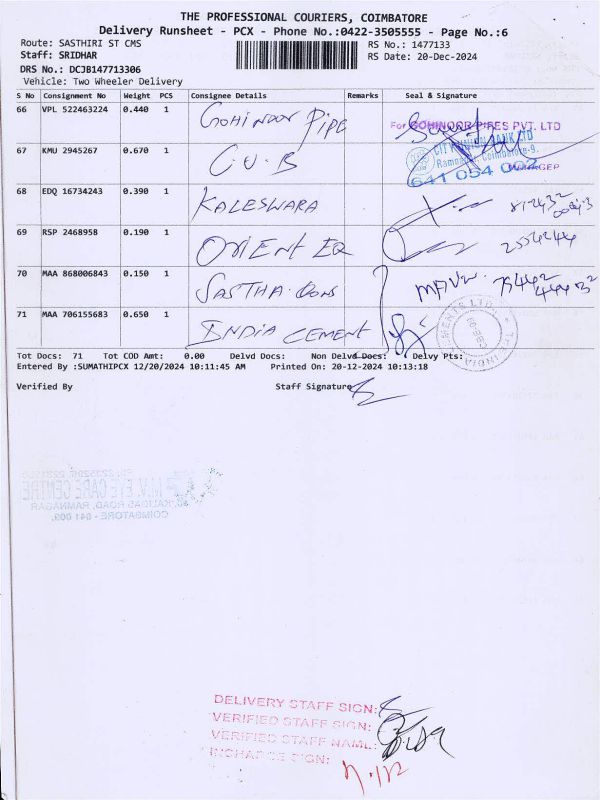 THE PROFESSIONAL COURIERS, COIMBATORE
Delivery Runsheet - PCX - Phone No.:0422-3505555 - Page No.:6
Route: SASTHIRI ST CMS
RS No.: 1477133
Staff: SRIDHAR
RS Date: 20-Dec-2024
DRS No.: DCJB147713306
Vehicle: Two Wheeler Delivery
S No Consignment No Weight PCS Consignee Details Remarks Seal & Signature
66 VPL 522463224 0.440 1 GOHINOOR PIPE
For GOHINOOR PIPES PVT. LTD
67 KMU 2945267 0.670 1 C.U.B
CITY UNION BANK LTD
Ramnagar, Coimbatore-9.
641 054 002
MANAGER
68 EDQ 16734243 0.390 1 KALESWARA
69 RSP 2468958 0.190 1 ORIENT EQ
70 MAA 868006843 0.150 1 SASTHA
71 MAA 706155683 0.650 1 INDIA CEMENT
Tot Docs: 71 Tot COD Amt: 0.00 Delvd Docs: Non Delvd Docs: Delvy Pts:
Entered By :SUMATHIPCX 12/20/2024 10:11:45 AM Printed On: 20-12-2024 10:13:18
Verified By Staff Signature
M.V. EYE CARE CENTRE
KALIDAS ROAD, RAMNAGAR,
COIMBATORE - 641 009.
DELIVERY STAFF SIGN:
VERIFIED STAFF SIGN:
VERIFIED STAFF NAME:
INCHARGE SIGN: